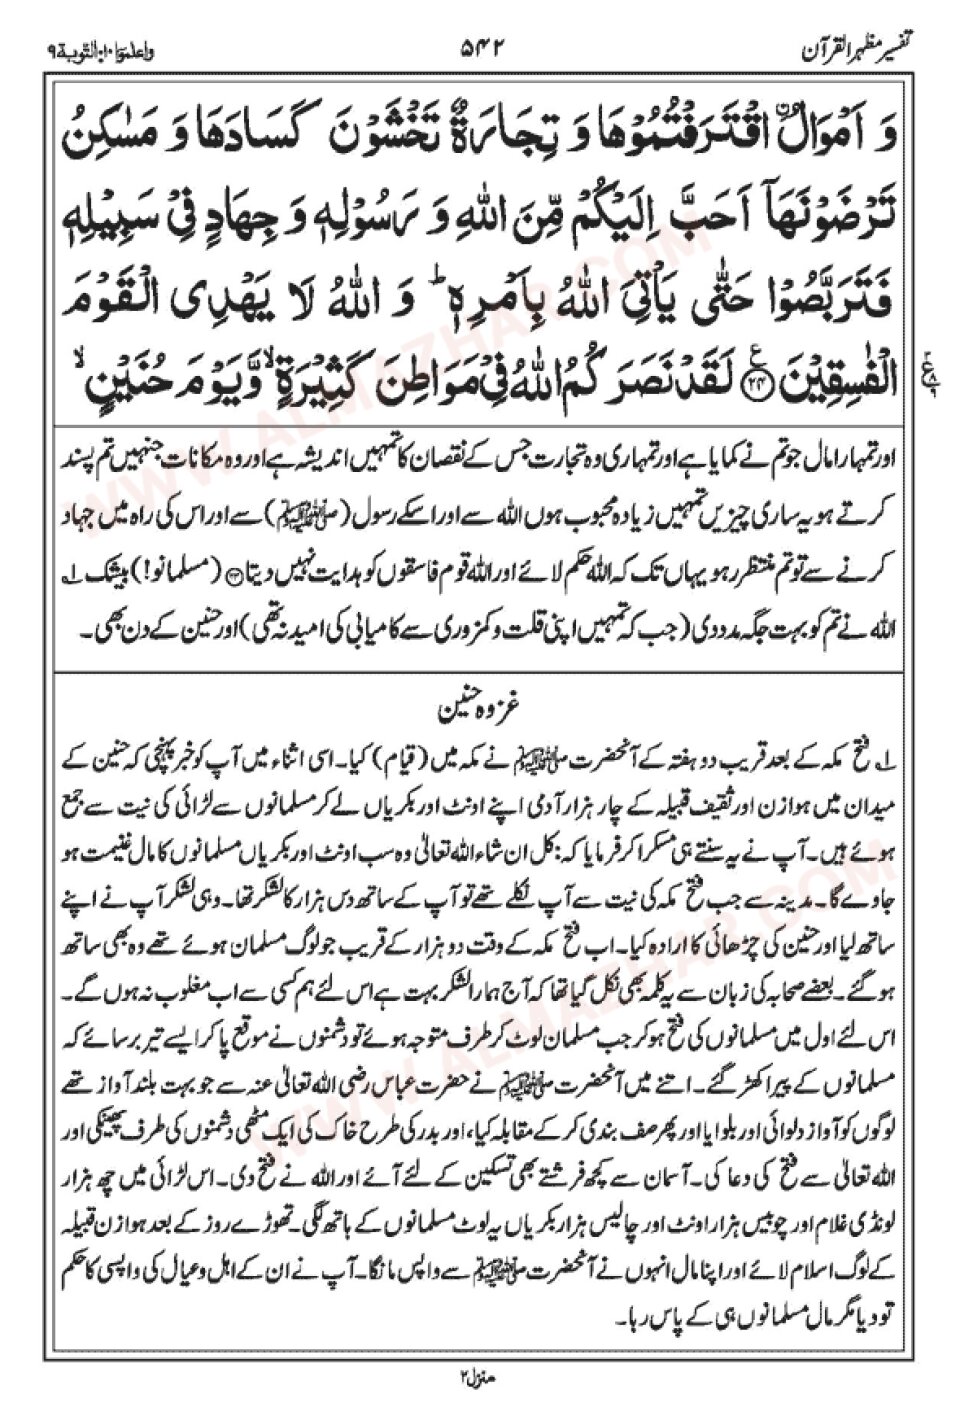 تفسیر مظہر القرآن ۵۴۲ واعلموا ۱۰: التوبۃ ۹
وَ اَمْوَالُ اِۨقْتَرَفْتُمُوْهَا وَ تِجَارَةٌ تَخْشَوْنَ كَسَادَهَا وَ مَسٰكِنُ
تَرْضَوْنَهَاۤ اَحَبَّ اِلَيْكُمْ مِّنَ اللّٰهِ وَ رَسُوْلِهٖ وَ جِهَادٍ فِيْ سَبِيْلِهٖ
فَتَرَبَّصُوْا حَتّٰى يَاْتِيَ اللّٰهُ بِاَمْرِهٖ ؕ وَ اللّٰهُ لَا يَهْدِى الْقَوْمَ
الْفٰسِقِيْنَ ﴿۲۴﴾ ع لَقَدْ نَصَرَكُمُ اللّٰهُ فِيْ مَوَاطِنَ كَثِيْرَةٍ ۙ وَّ يَوْمَ حُنَيْنٍ ۙ
اور تمہارا مال جو تم نے کمایا ہے اور تمہاری وہ تجارت جس کے نقصان کا تمہیں اندیشہ ہے اور وہ مکانات جنہیں تم پسند
کرتے ہو یہ ساری چیزیں تمہیں زیادہ محبوب ہوں اللہ سے اور اسکے رسول (ﷺ) سے اور اس کی راہ میں جہاد
کرنے سے تو تم منتظر رہو یہاں تک کہ اللہ حکم لائے اور اللہ قوم فاسقوں کو ہدایت نہیں دیتا ﴿۲۴﴾ (مسلمانو!) بیشک ۱؎
اللہ نے تم کو بہت جگہ مدد دی (جب کہ تمہیں اپنی قلت و کمزوری سے کامیابی کی امید نہ تھی) اور حنین کے دن بھی۔
غزوہ حنین
۱؎ فتح مکہ کے بعد قریب دو ہفتہ کے آنحضرت ﷺ نے مکہ میں (قیام) کیا۔ اسی اثناء میں آپ کو خبر پہنچی کہ حنین کے
میدان میں ہوازن اور ثقیف قبیلہ کے چار ہزار آدمی اپنے اونٹ اور بکریاں لے کر مسلمانوں سے لڑائی کی نیت سے جمع
ہوئے ہیں۔ آپ نے یہ سنتے ہی مسکرا کر فرمایا کہ: کل ان شاء اللہ تعالیٰ وہ سب اونٹ اور بکریاں مسلمانوں کا مال غنیمت ہو
جاوے گا۔ مدینہ سے جب فتح مکہ کی نیت سے آپ نکلے تھے تو آپ کے ساتھ دس ہزار کا لشکر تھا۔ وہی لشکر آپ نے اپنے
ساتھ لیا اور حنین کی چڑھائی کا ارادہ کیا۔ اب فتح مکہ کے وقت دو ہزار کے قریب جو لوگ مسلمان ہوئے تھے وہ بھی ساتھ
ہو گئے۔ بعضے صحابہ کی زبان سے یہ کلمہ بھی نکل گیا تھا کہ آج ہمارا لشکر بہت ہے اس لئے ہم کسی سے اب مغلوب نہ ہوں گے۔
اس لئے اول میں مسلمانوں کی فتح ہو کر جب مسلمان لوٹ کر طرف متوجہ ہوئے تو دشمنوں نے موقع پا کر ایسے تیر برسائے کہ
مسلمانوں کے پیر اکھڑ گئے۔ اتنے میں آنحضرت ﷺ نے حضرت عباس رضی اللہ تعالیٰ عنہ سے جو بہت بلند آواز تھے
لوگوں کو آواز دلوائی اور بلوایا اور پھر صف بندی کر کے مقابلہ کیا، اور بدر کی طرح خاک کی ایک مٹھی دشمنوں کی طرف پھینکی اور
اللہ تعالیٰ سے فتح کی دعا کی۔ آسمان سے کچھ فرشتے بھی تسکین کے لئے آئے اور اللہ نے فتح دی۔ اس لڑائی میں چھ ہزار
لونڈی غلام اور چوبیس ہزار اونٹ اور چالیس ہزار بکریاں یہ لوٹ مسلمانوں کے ہاتھ لگی۔ تھوڑے روز کے بعد ہوازن قبیلہ
کے لوگ اسلام لائے اور اپنا مال انہوں نے آنحضرت ﷺ سے واپس مانگا۔ آپ نے ان کے اہل و عیال کی واپسی کا حکم
تو دیا مگر مال مسلمانوں ہی کے پاس رہا۔
منزل ۲
WWW.ALMAZHAR.COM
WWW.ALMAZHAR.COM